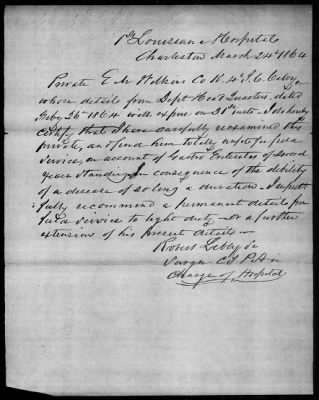 1st Louisiana Hospital
Charleston March 24th 1864
Private E. M. Wilkins Co K. 4th S.C. Cavy.
whose details from Dept Head Quarters, dated
Feby 26th 1864 will expire on 31st inst. I do hereby
certify that I have carefully reexamined this
private, and find him totally unfit for field
service, on account of Gastro Enteritas of several
years standing. In consequence of the debility
of a disease of so long a duration. I respect-
fully recommend a permanent details from
field service to light duty, or a further
extension of his present details—
Robert Lebby Sr
Surgn C.S. P.A. in
Charge of Hospital